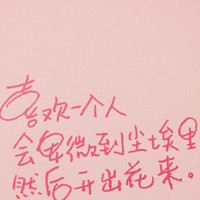 喜欢一个人
会卑微到尘埃里
然后开出花来。